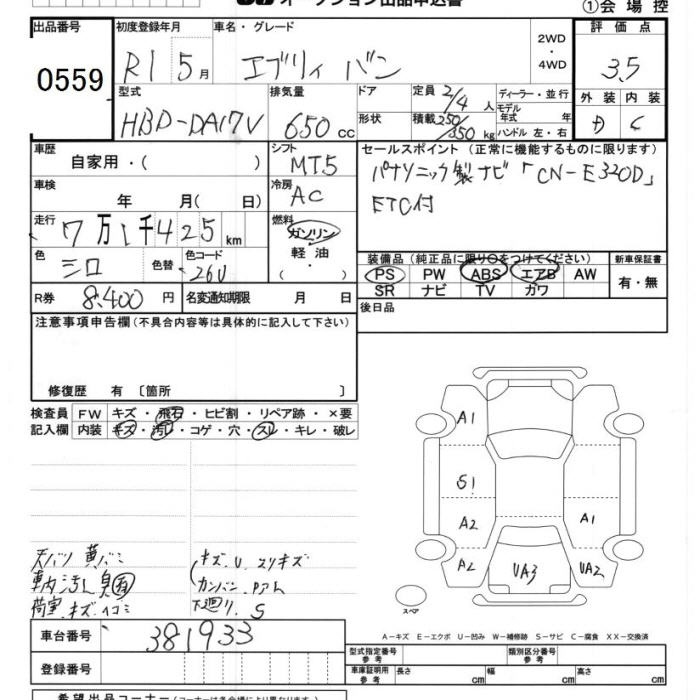 オークション出品申込書
①会場控
出品番号 初度登録年月 車名・グレード 2WD・4WD 評価点
0559 R1 5月 エブリィ バン 3.5
型式 排気量 ドア 定員 2/4人 ディーラー・並行 外装 内装
HBD-DA17V 650cc 形状 積載 250/350kg モデル年式 年 D C
ハンドル 左・右
車歴 自家用・( ) シフト MT5 セールスポイント (正常に機能するものに限ります)
車検 年 月( 日) 冷房 AC パナソニック製ナビ「CN-E320D」
ETC付
走行 7万1千425km 燃料 ガソリン・軽油・( )
色 シロ 色替 色コード 26U
装備品 (純正品に限り○をつけてください) 新車保証書
PS PW ABS エアB AW 有・無
SR ナビ TV カワ
R券 8.400円 名変通知期限 月 日 後日品
注意事項申告欄(不具合内容等は具体的に記入して下さい)
修復歴 有 〔箇所 〕
検査員 FW キズ・飛石・ヒビ割・リペア跡・×要
記入欄 内装 キズ・汚レ・コゲ・穴・スレ・キレ・破レ
A1
S1
A2 A1
A2 UA3 UA2
スペア
キズ.U.スリキズ
車内汚レ 臭有 カンバン
荷室.キズ.ヘコミ 下廻り.S
A-キズ E-エクボ U-凹み W-補修跡 S-サビ C-腐食 XX-交換済
車台番号 381933 型式指定番号 参考 類別区分番号 参考
登録番号 車庫証明用 参考 長さ cm 幅 cm 高さ cm
希望出品コーナー